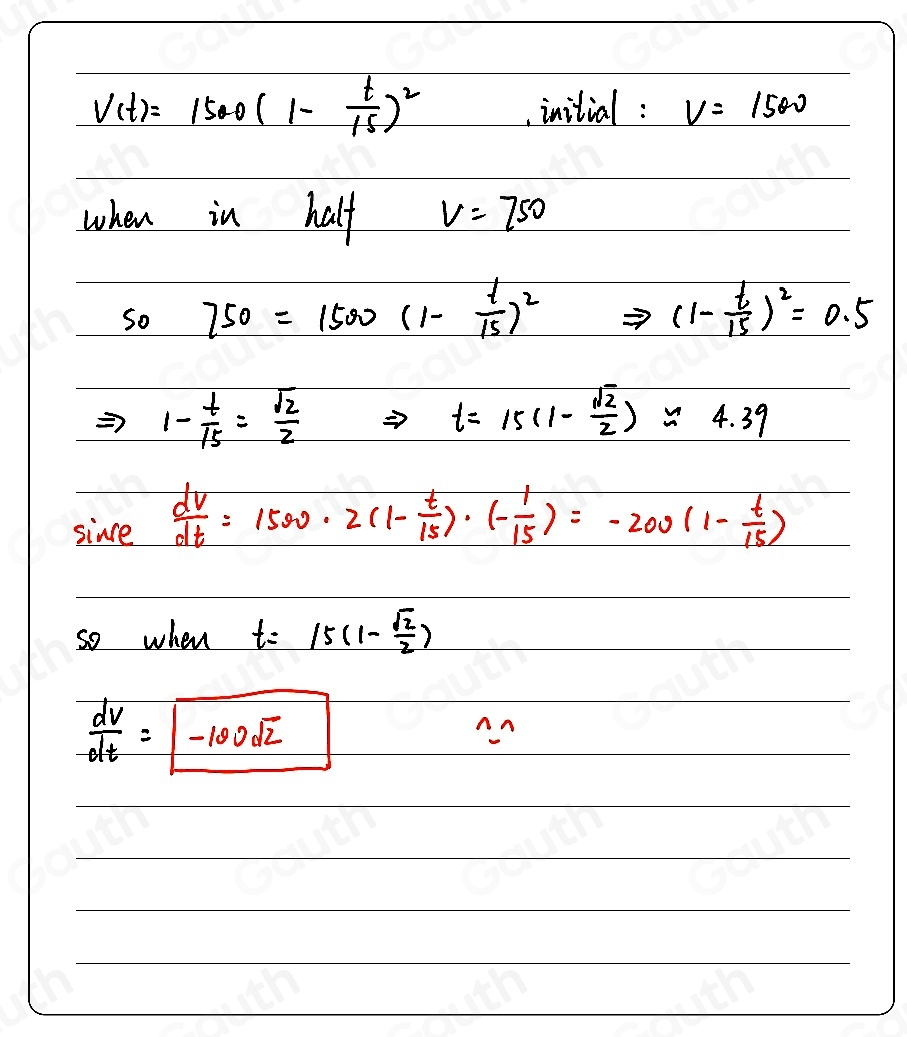 V(t)= 1500(1- t/15)² . initial : V= 1500
when in half V= 750
so 750 = 1500 (1- t/15)² ⇒ (1- t/15)² = 0.5
⇒ 1- t/15 = √2/2 ⇒ t= 15(1- √2/2) ≈ 4.39
since dv/dt = 1500 · 2(1- t/15) · (- 1/15) = -200(1- t/15)
so when t= 15(1- √2/2)
dv/dt = -100√2 ^‿^